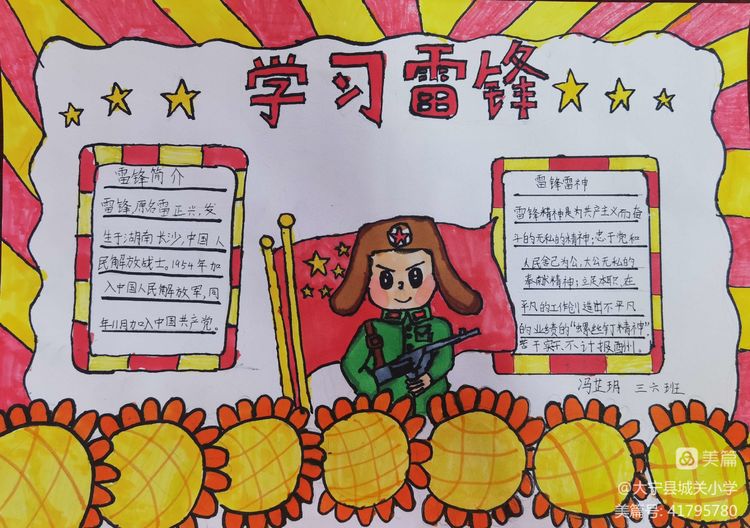 学习雷锋
雷锋简介
雷锋,原名雷正兴,发
生于湖南长沙,中国人
民解放战士。1954年加
入中国人民解放军,同
年11月加入中国共产党。
雷锋雷神
雷锋精神是为共产主义而奋
斗的无私的精神;忠于党和
人民舍己为公,大公无私的
奉献精神;立足本职、在
平凡的工作创造出不平凡
的业绩的“螺丝钉精神”
苦干实干、不计报酬。
冯芷玥 三六班
美篇
@大宁县城关小学
美篇号:41795780